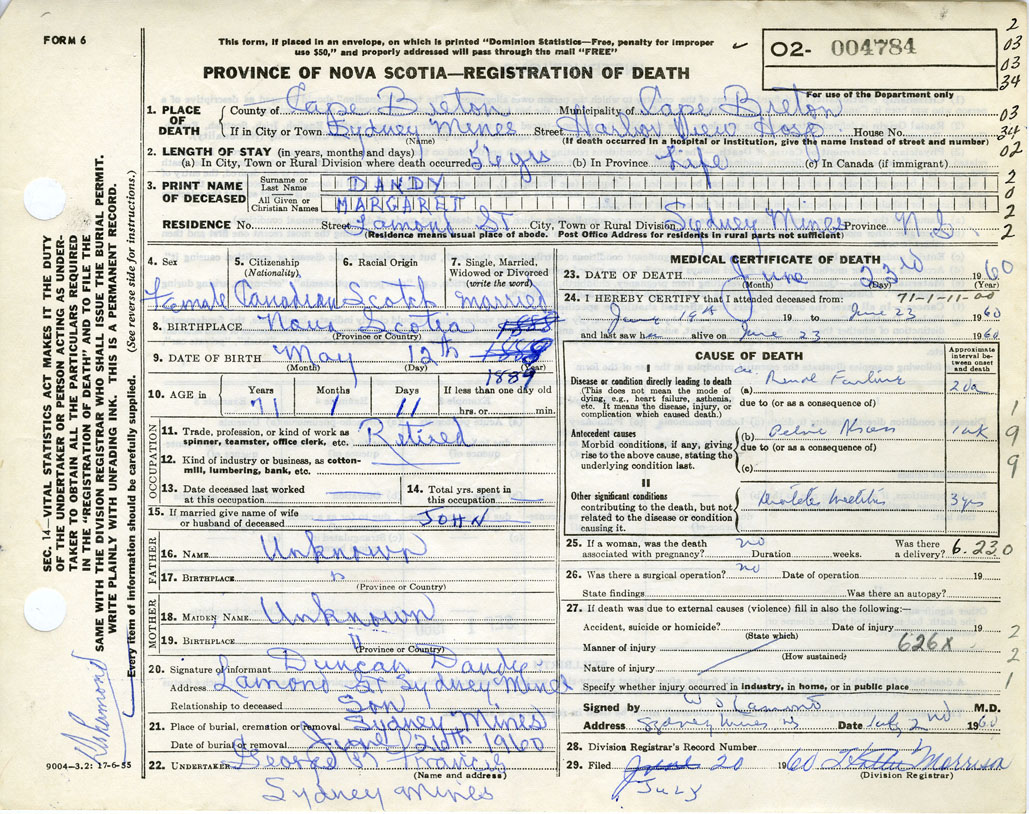 FORM 6
This form, if placed in an envelope, on which is printed "Dominion Statistics—Free, penalty for improper
use $50," and properly addressed will pass through the mail "FREE"
02- 004784
For use of the Department only
PROVINCE OF NOVA SCOTIA—REGISTRATION OF DEATH
2
03
03
34
03
34
02
2
0
2
2
1. PLACE OF DEATH County of Cape Breton Municipality of Cape Breton
If in City or Town Sydney Mines Street Harbor View Hosp House No.
(Name) (If death occurred in a hospital or institution, give the name instead of street and number)
2. LENGTH OF STAY (in years, months and days)
(a) In City, Town or Rural Division where death occurred 56 yrs (b) In Province Life (c) In Canada (if immigrant)
3. PRINT NAME OF DECEASED Surname or Last Name DANDY
All Given or Christian Names MARGARET
RESIDENCE No. Street Lamond St City, Town or Rural Division Sydney Mines Province N.S.
(Residence means usual place of abode. Post Office Address for residents in rural parts not sufficient)
4. Sex Female
5. Citizenship (Nationality), Canadian
6. Racial Origin Scotch
7. Single, Married, Widowed or Divorced (write the word) married
8. BIRTHPLACE Nova Scotia
(Province or Country)
9. DATE OF BIRTH May 12th 1889
(Month) (Day) (Year)
10. AGE in Years 71 Months 1 Days 11 If less than one day old
hrs. or min.
OCCUPATION
11. Trade, profession, or kind of work as spinner, teamster, office clerk, etc. Retired
12. Kind of industry or business, as cotton-mill, lumbering, bank, etc.
13. Date deceased last worked at this occupation
14. Total yrs. spent in this occupation
15. If married give name of wife or husband of deceased JOHN
FATHER
16. NAME Unknown
17. BIRTHPLACE "
(Province or Country)
MOTHER
18. MAIDEN NAME Unknown
19. BIRTHPLACE "
(Province or Country)
20. Signature of informant Duncan Dandy
Address Lamond St Sydney Mines
Relationship to deceased Son
21. Place of burial, cremation or removal Sydney Mines
Date of burial or removal June 26th 1960
22. UNDERTAKER George Francis
(Name and address)
Sydney Mines
MEDICAL CERTIFICATE OF DEATH
23. DATE OF DEATH June 23rd 1960
(Month) (Day) (Year)
24. I HEREBY CERTIFY that I attended deceased from: 71-1-11-00
June 19th 19 to June 23 1960
and last saw h alive on June 23 1960
CAUSE OF DEATH
Approximate interval between onset and death
I
Disease or condition directly leading to death (a) Renal Failure 2 da
(This does not mean the mode of dying, e.g., heart failure, asthenia, etc. It means the disease, injury, or complication which caused death.)
due to (or as a consequence of)
Antecedent causes (b) Pelvic Abscess 1 wk
Morbid conditions, if any, giving rise to the above cause, stating the underlying condition last.
due to (or as a consequence of)
(c)
II
Other significant conditions contributing to the death, but not related to the disease or condition causing it. 3 yrs
1
9
9
25. If a woman, was the death associated with pregnancy? no Duration weeks. Was there a delivery? 6.230
26. Was there a surgical operation? no Date of operation 19
State findings Was there an autopsy?
27. If death was due to external causes (violence) fill in also the following:—
Accident, suicide or homicide? Date of injury 19
(State which)
Manner of injury 626X
(How sustained)
Nature of injury
Specify whether injury occurred in industry, in home, or in public place
2
2
1
Signed by M.D.
Address Sydney Mines NS Date July 2nd 1960
28. Division Registrar's Record Number
29. Filed July 20 1960 Morrison
(Division Registrar)
SEC. 14—VITAL STATISTICS ACT MAKES IT THE DUTY
OF THE UNDERTAKER OR PERSON ACTING AS UNDER-
TAKER TO OBTAIN ALL THE PARTICULARS REQUIRED
IN THE "REGISTRATION OF DEATH" AND TO FILE THE
SAME WITH THE DIVISION REGISTRAR WHO SHALL ISSUE THE BURIAL PERMIT.
WRITE PLAINLY WITH UNFADING INK. THIS IS A PERMANENT RECORD.
Every item of information should be carefully supplied. (See reverse side for instructions.)
9004—3.2: 17-6-55